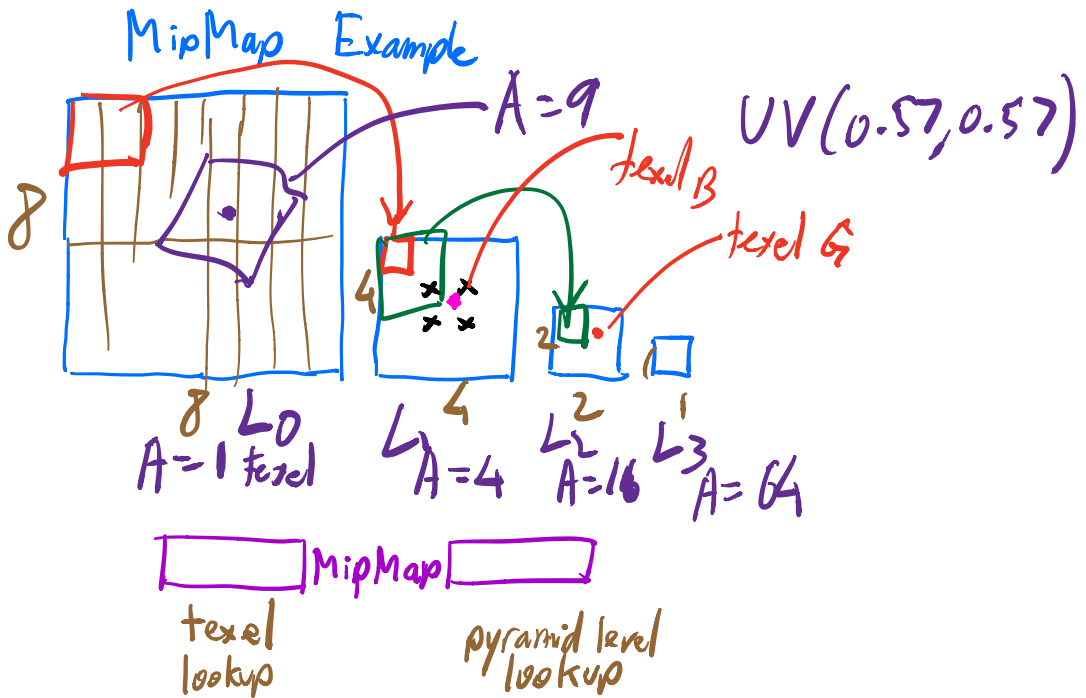 MipMap Example
A=9
UV(0.57,0.57)
texel B
texel G
8
4
2
1
8
4
2
1
L0
L1
L2
L3
A=1 texel
A=4
A=16
A=64
MipMap
texel
lookup
pyramid level
lookup